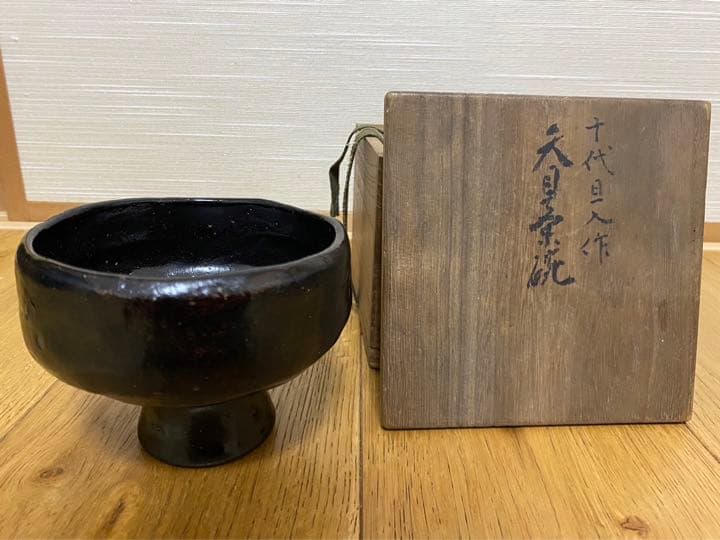 十代旦入作
天目茶碗